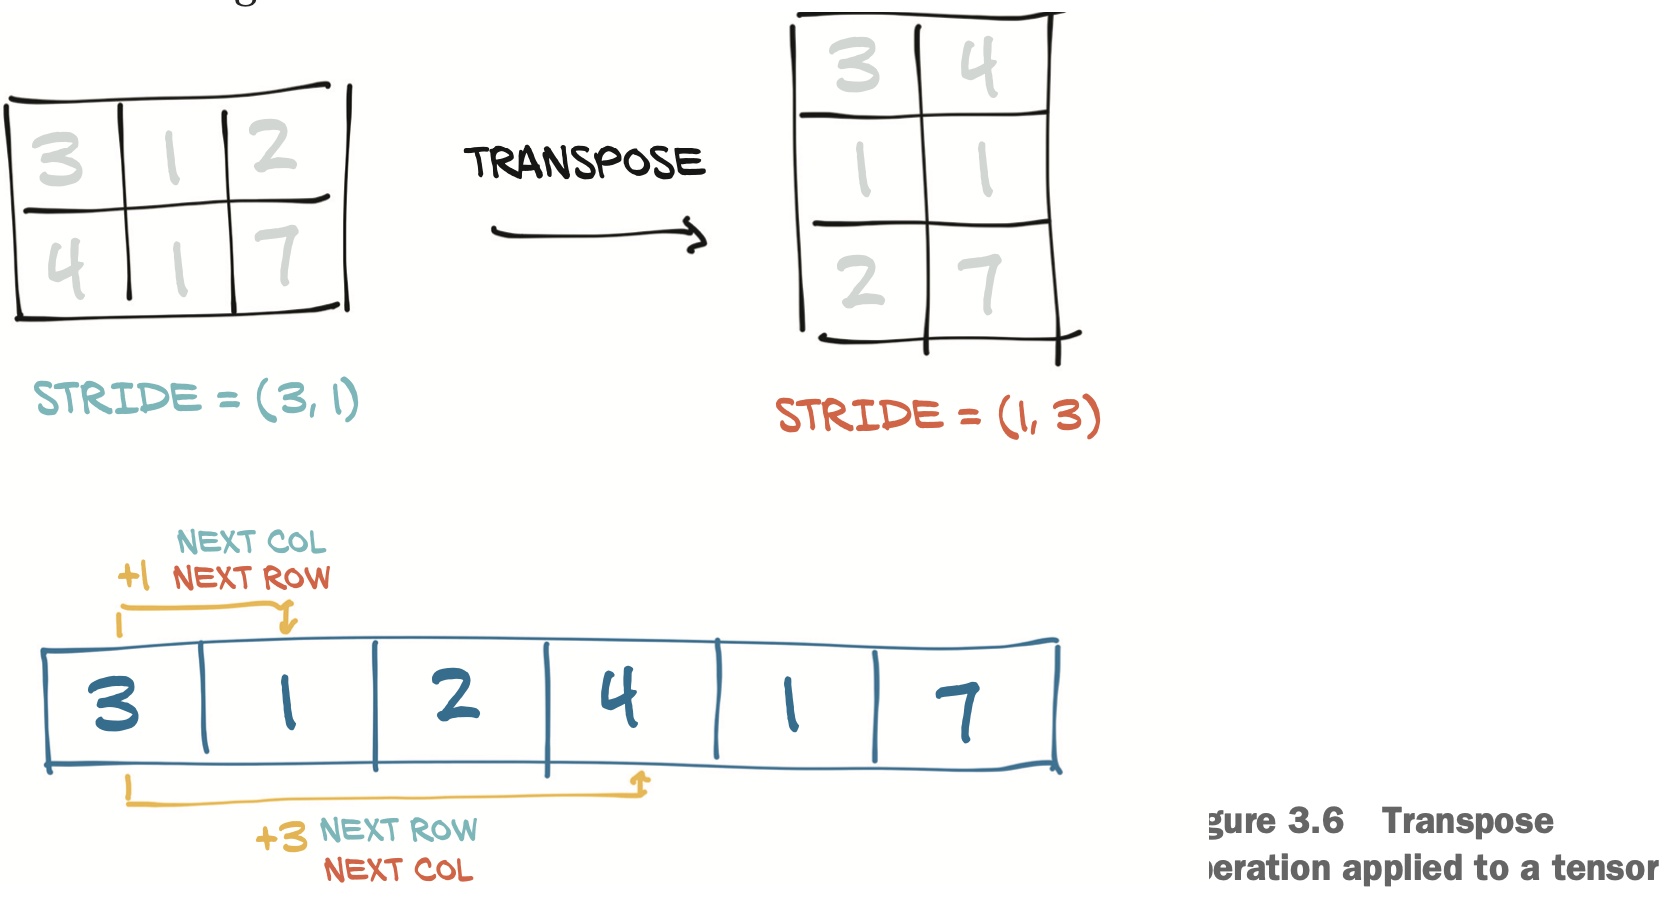 3 1 2
4 1 7
STRIDE = (3, 1)
TRANSPOSE
3 4
1 1
2 7
STRIDE = (1, 3)
NEXT COL
+1 NEXT ROW
3 1 2 4 1 7
+3 NEXT ROW
NEXT COL
gure 3.6 Transpose
peration applied to a tensor